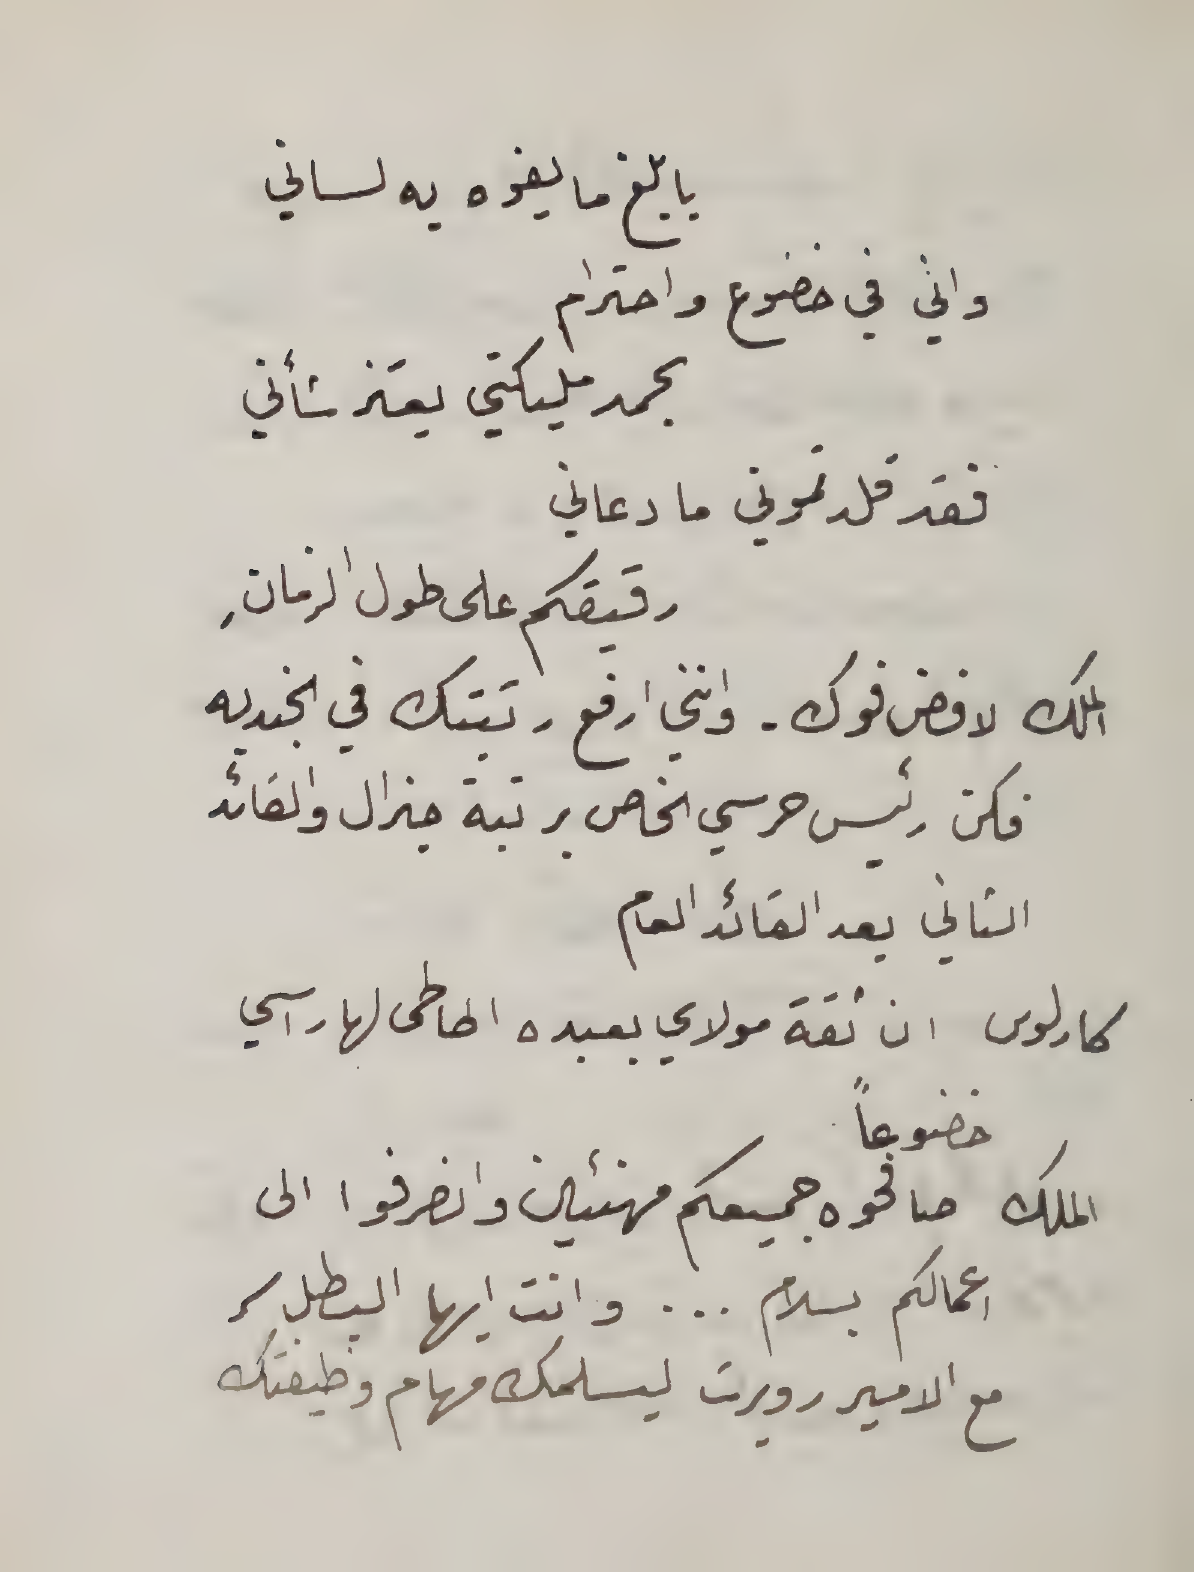 بابلغ ما يفوه به لساني
واني في خضوع واحترام
بحمد مليكتي يعتز شأني
فقد قلدتموني ما دعاني
رقيقكم على طول الزمان
الملك لا فض فوك . وانني ارفع رتبتك في الجنديه
فكن رئيس حرسي الخاص برتبة جنرال والقائد
الثاني بعد القائد العام
كارلوس ان ثقة مولاي بعبده الطاطئ لها رأسي
خضوعاً
الملك صافحوه جميعكم مهنئين وانصرفوا الى
اعمالكم بسلام ... وانت ايها البطل سر
مع الامير روبرت ليسلمك مهام وظيفتك